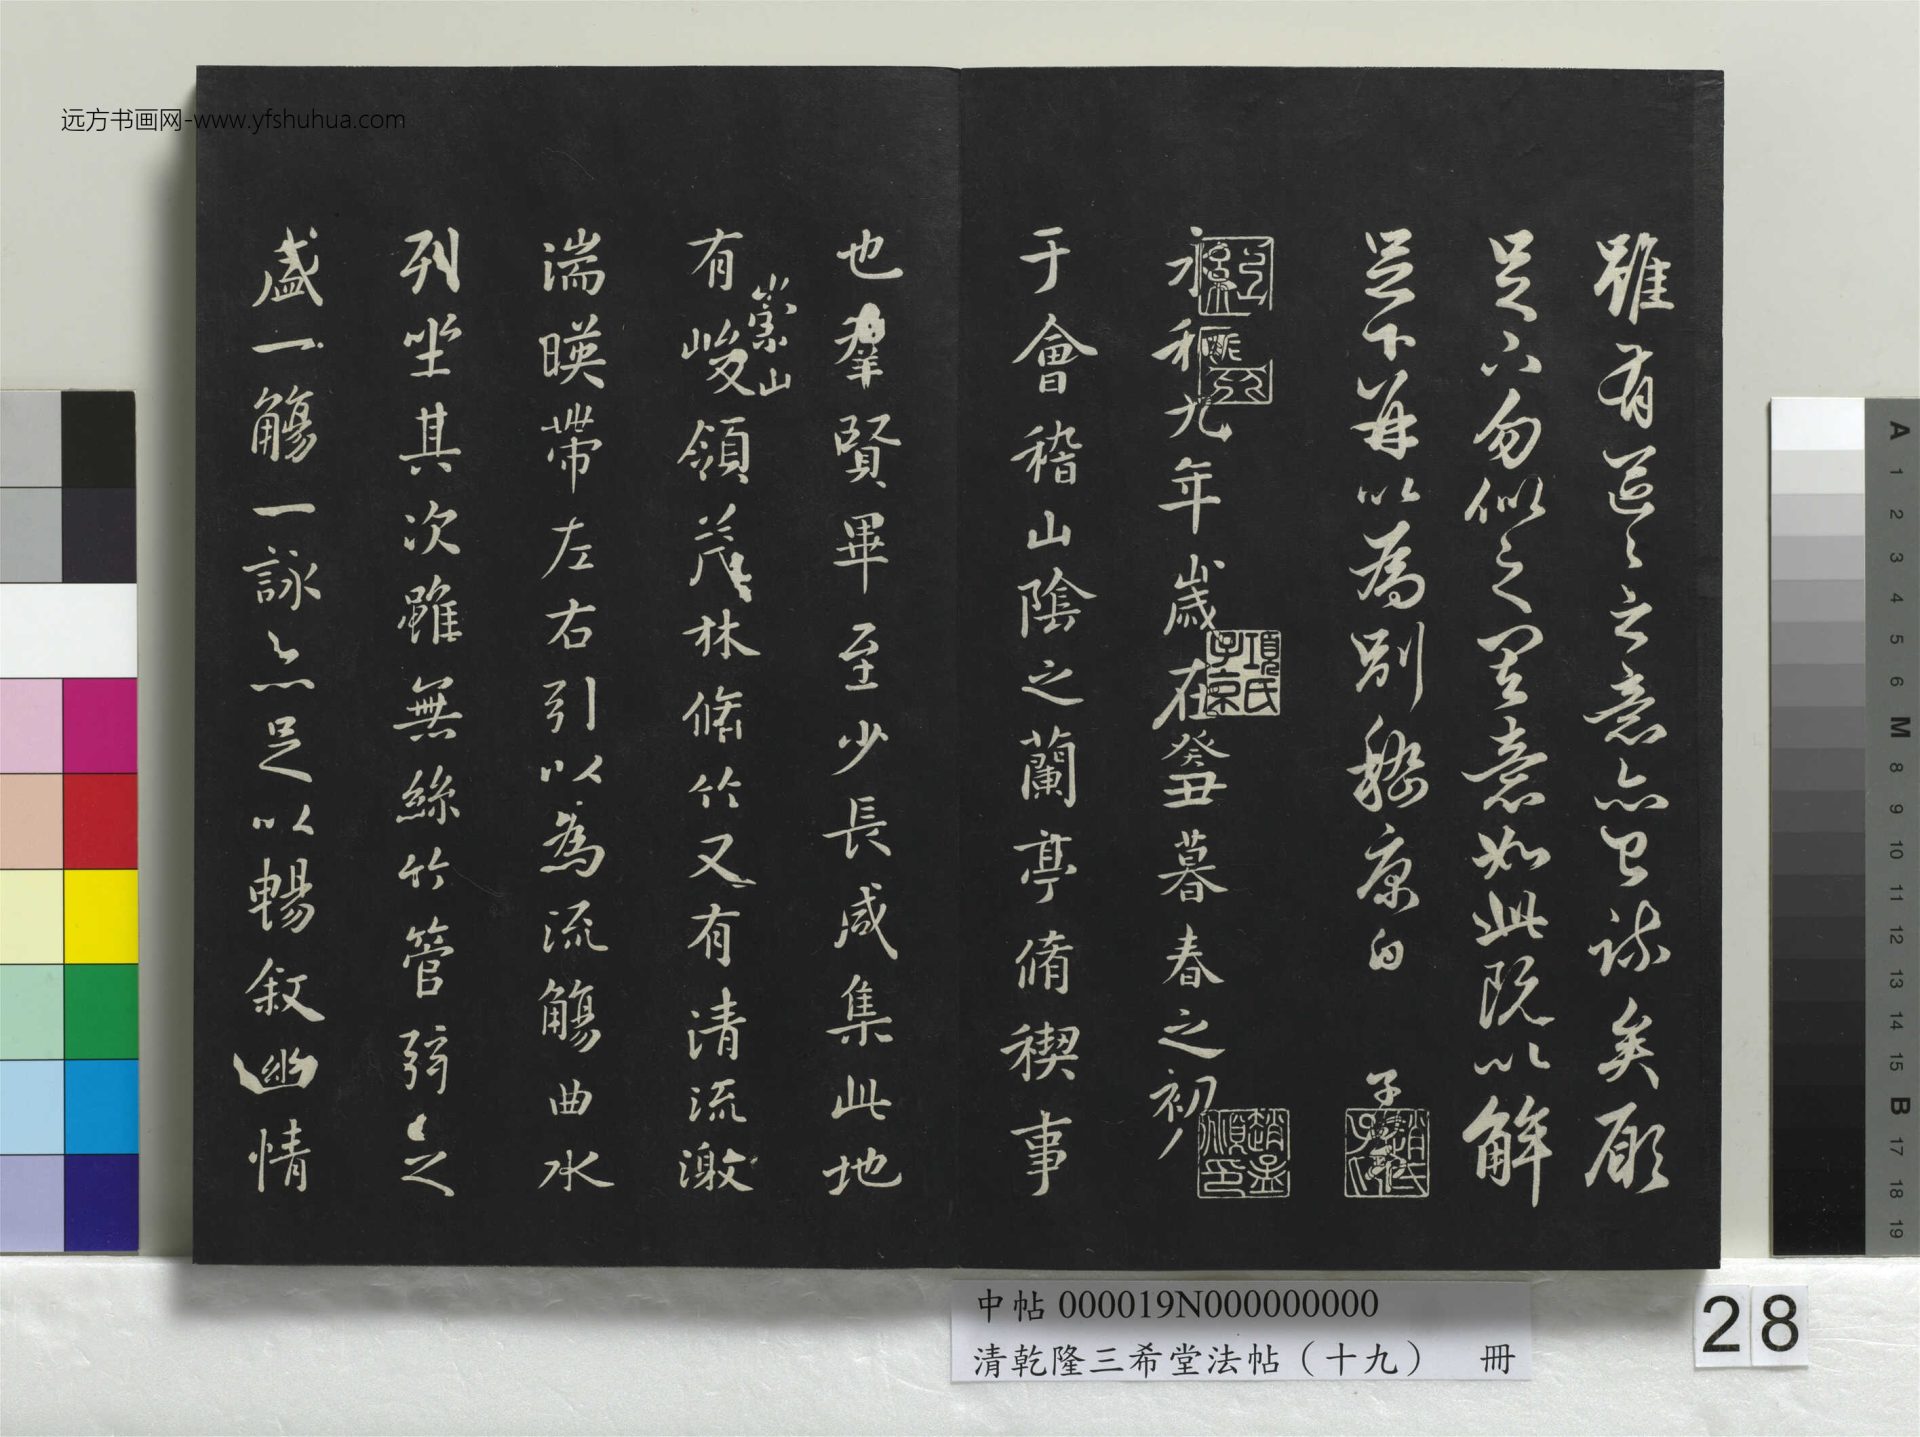 远方书画网-www.yfshuhua.com
雖有區々之意亦已疎矣願
足下勿似之其意如此既以解
足下并以為別嵇康白 子昂
永和九年歲在癸丑暮春之初
于會稽山陰之蘭亭脩稧事
也羣賢畢至少長咸集此地
有峻領茂林脩竹又有清流激
崇山
湍暎帶左右引以為流觴曲水
列坐其次雖無絲竹管弦之
盛一觴一詠亦足以暢敘幽情
項氏子京
趙孟頫印
趙氏子昂
中帖 000019N000000000
清乾隆三希堂法帖（十九） 冊
28
A 1 2 3 4 5 6 M 8 9 10 11 12 13 14 15 B 17 18 19